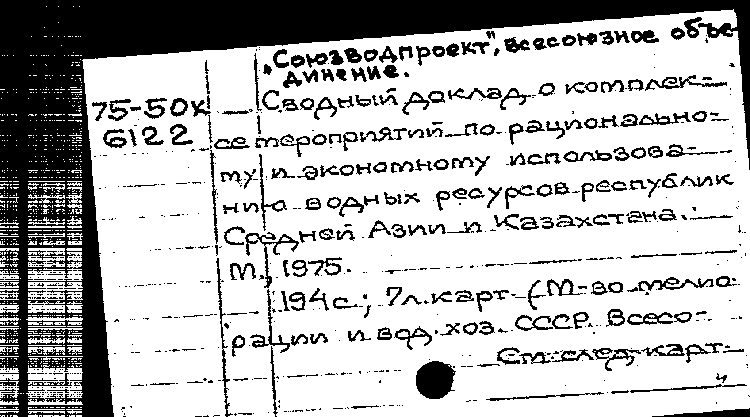 „Союзводпроект", всесоюзное объе-
динение.
75-50к Сводный доклад о комплек-
6122 се мероприятий по рационально-
му и экономному использова-
нию водных ресурсов республик
Средней Азии и Казахстана.
М., 1975.
194с.; 7л.карт (М-во мелио-
рации и вод. хоз. СССР. Всесо-
См. след. карт.